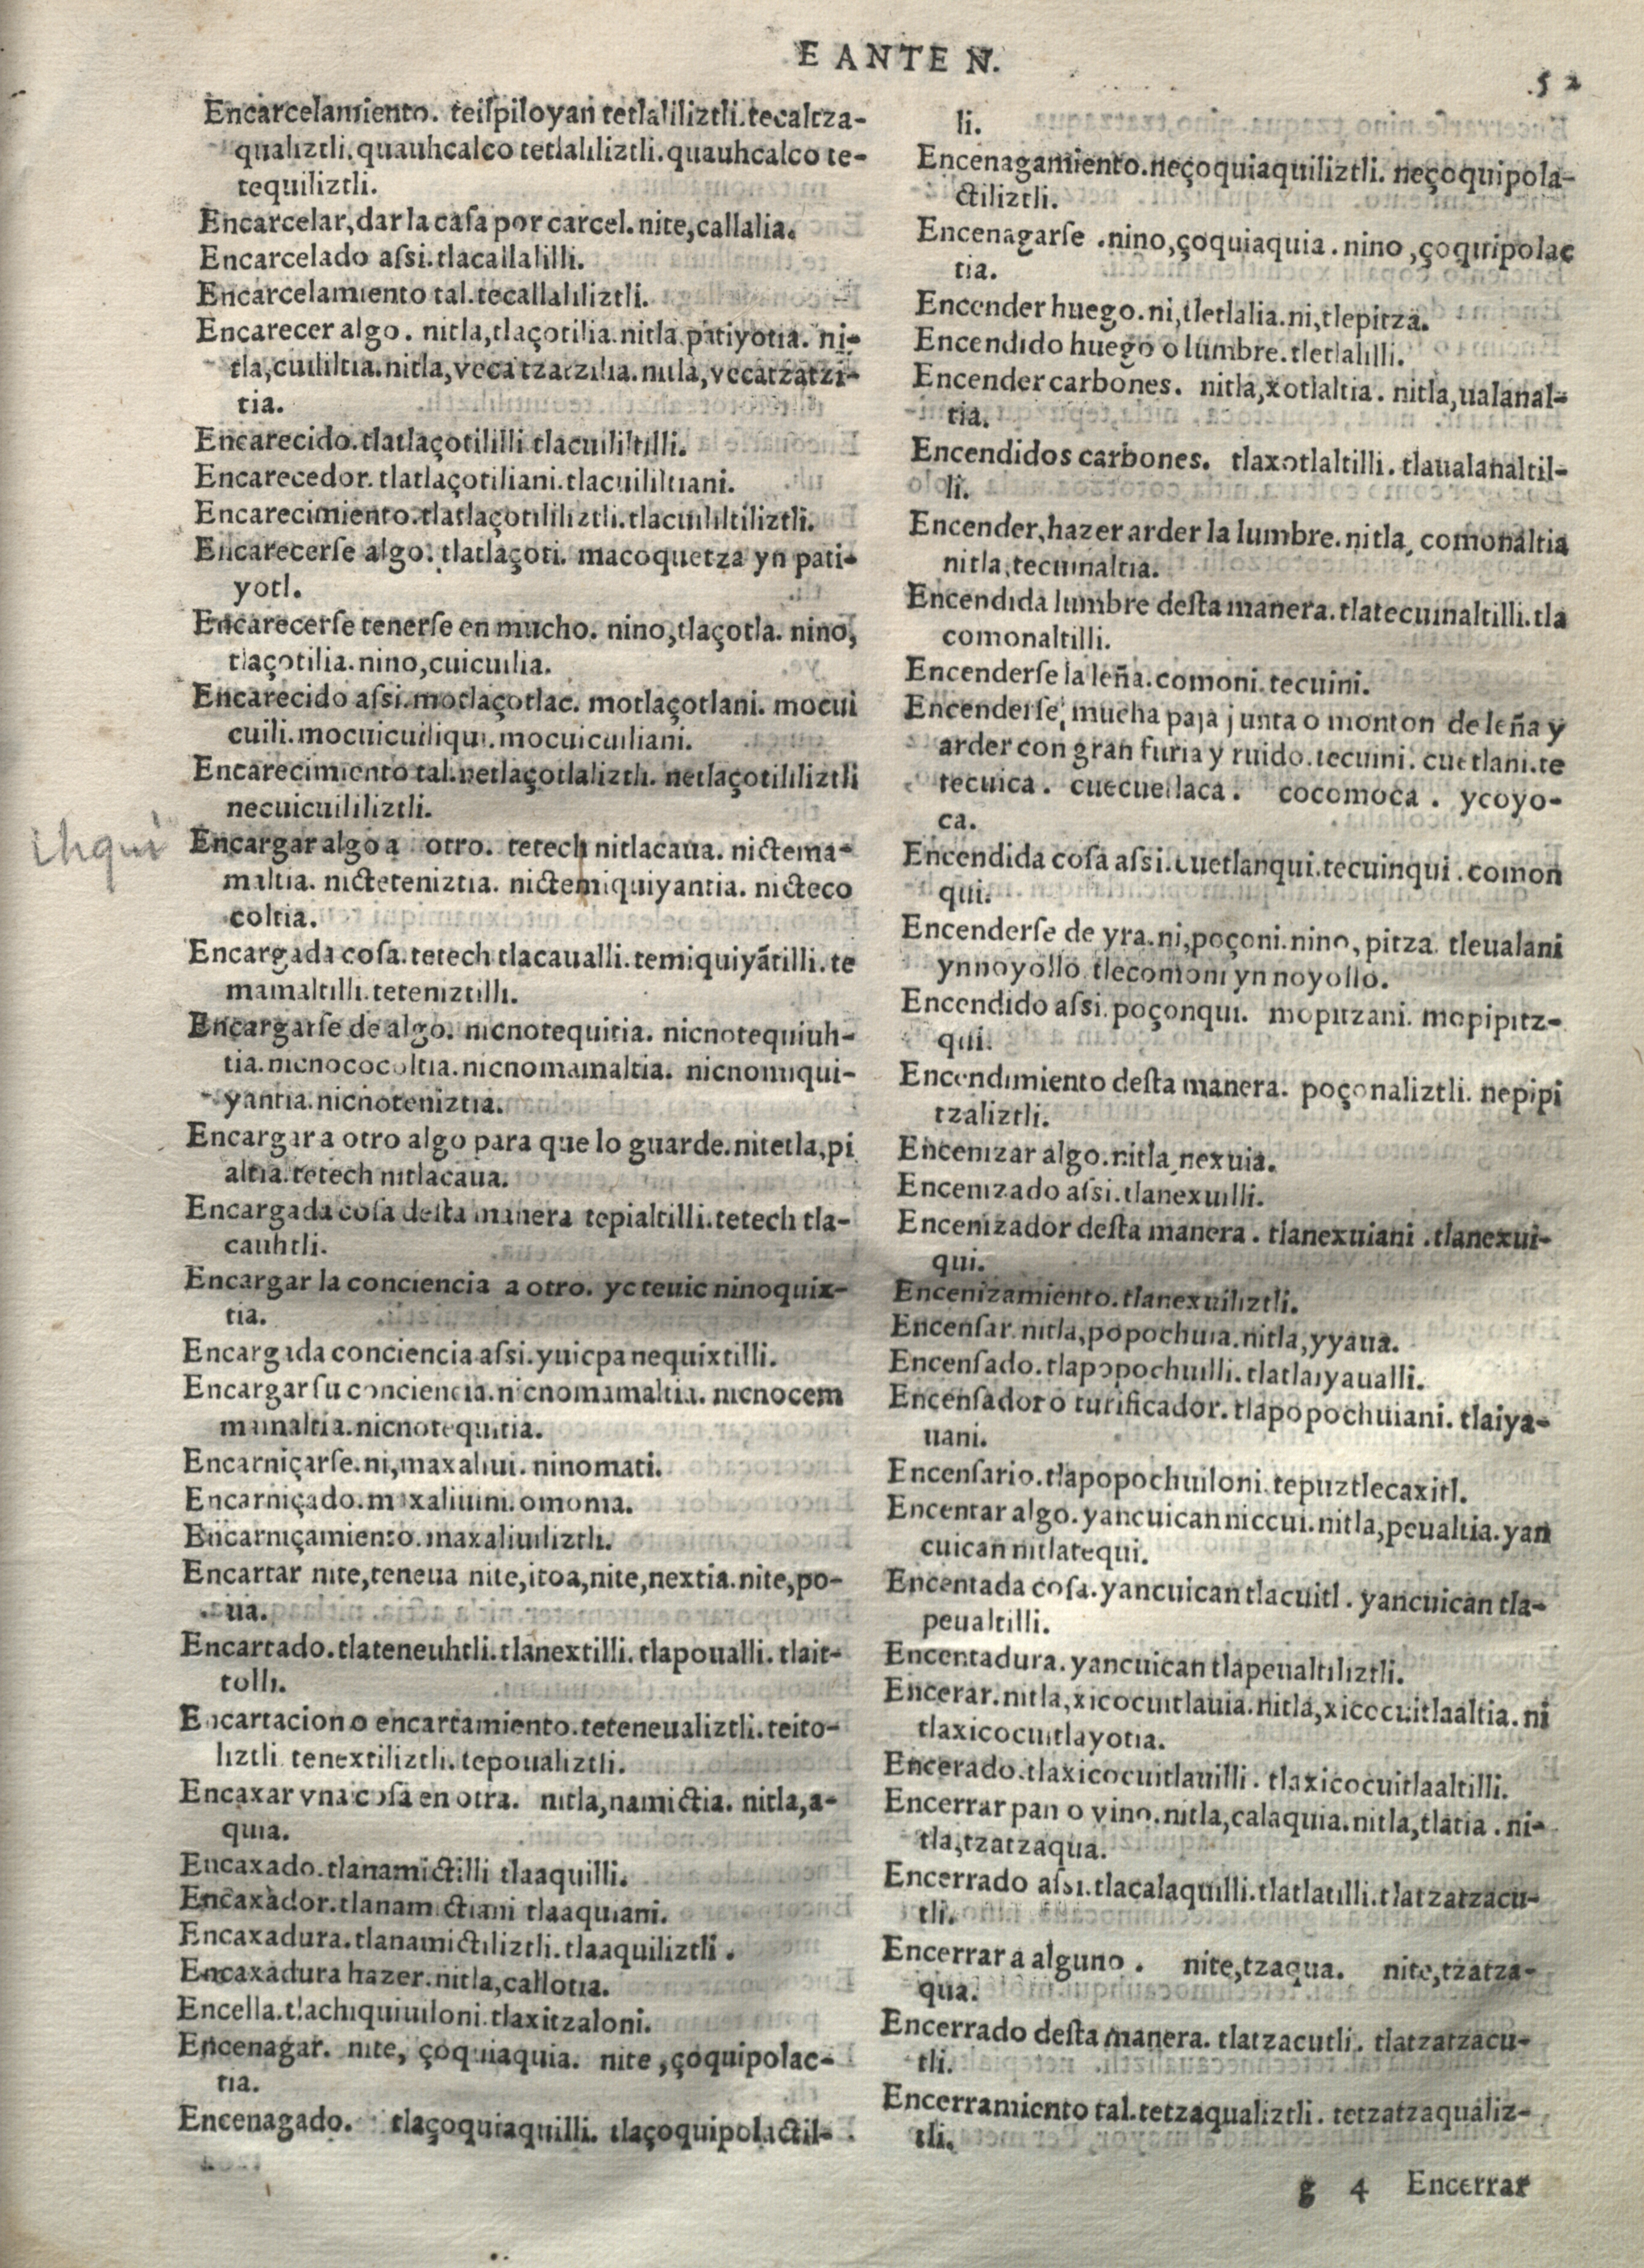 E ANTE N.
52
Encarcelamiento. teilpiloyan tetlaliliztli. tecaltza-
qualiztli. quauhcalco tetlaliliztli. quauhcalco te-
tequiliztli.
Encarcelar, dar la casa por carcel. nite, callalia.
Encarcelado assi. tlacallalilli.
Encarcelamiento tal. tecallaliliztli.
Encarecer algo. nitla, tlaçotilia. nitla patiyotia. ni-
tla, cuililtia. nitla, vecatzatzilia. nitla, vecatzatzi-
tia.
Encarecido. tlatlaçotililli tlacuililtilli.
Encarecedor. tlatlaçotiliani. tlacuililtiani.
Encarecimiento. tlatlaçotililiztli. tlacuililtiliztli.
Encarecerse algo. tlatlaçoti. macoquetza yn pati-
yotl.
Encarecerse tenerse en mucho. nino, tlaçotla. nino,
tlaçotilia. nino, cuicuilia.
Encarecido assi. motlaçotlac. motlaçotlani. mocui
cuili. mocuicuiliqui. mocuicuiliani.
Encarecimiento tal. netlaçotlaliztli. netlaçotililiztli
necuicuililiztli.
Encargar algo a otro. tetech nitlacaua. nictema-
maltia. nicteteniztia. nictemiquiyantia. nicteco
coltia.
Encargada cosa. tetech tlacaualli. temiquiyãtilli. te
mamaltilli. teteniztilli.
Encargarse de algo. nicnotequitia. nicnotequiuh-
tia. nicnococoltia. nicnomamaltia. nicnomiqui-
yantia. nicnoteniztia.
Encargar a otro algo para que lo guarde. nitetla, pi
altia. tetech nitlacaua.
Encargada cosa desta manera tepialtilli. tetech tla-
cauhtli.
Encargar la conciencia a otro. yc teuic ninoquix-
tia.
Encargada conciencia assi. yuicpa nequixtilli.
Encargar su conciencia. nicnomamaltia. nicnocem
mamaltia. nicnotequitia.
Encarniçarse. ni, maxaliui. ninomati.
Encarniçado. maxaliuini. omoma.
Encarniçamiento. maxaliuiliztli.
Encartar nite, teneua nite, itoa, nite, nextia. nite, po-
ua.
Encartado. tlateneuhtli. tlanextilli. tlapoualli. tlait-
tolli.
Encartacion o encartamiento. teteneualiztli. teito-
liztli tenextiliztli. tepoualiztli.
Encaxar vna cosa en otra. nitla, namictia. nitla, a-
quia.
Encaxado. tlanamictilli tlaaquilli.
Encaxador. tlanamictiani tlaaquiani.
Encaxadura. tlanamictiliztli. tlaaquiliztli.
Encaxadura hazer. nitla, callotia.
Encella. tlachiquiuiloni. tlaxitzaloni.
Encenagar. nite, çoquiaquia. nite, çoquipolac-
tia.
Encenagado. tlaçoquiaquilli. tlaçoquipolactil-
li.
Encenagamiento. neçoquiaquiliztli. neçoquipola-
ctiliztli.
Encenagarse. nino, çoquiaquia. nino, çoquipolac
tia.
Encender huego. ni, tletlalia. ni, tlepitza.
Encendido huego o lumbre. tletlalilli.
Encender carbones. nitla, xotlaltia. nitla, ualanal-
tia.
Encendidos carbones. tlaxotlaltilli. tlaualanaltil-
li.
Encender, hazer arder la lumbre. nitla, comonaltia
nitla, tecuinaltia.
Encendida lumbre desta manera. tlatecuinaltilli. tla
comonaltilli.
Encenderse la leña. comoni. tecuini.
Encenderse mucha paja junta o monton de leña y
arder con gran furia y ruido. tecuini. cuetlani. te
tecuica. cuecuetlaca. cocomoca. ycoyo-
ca.
Encendida cosa assi. cuetlanqui. tecuinqui. comon
qui.
Encenderse de yra. ni, poçoni. nino, pitza. tleualani
yn noyollo tlecomoni yn noyollo.
Encendido assi. poçonqui. mopitzani. mopipitz-
qui.
Encendimiento desta manera. poçonaliztli. nepipi
tzaliztli.
Encenizar algo. nitla, nexuia.
Encenizado assi. tlanexuilli.
Encenizador desta manera. tlanexuiani. tlanexui-
qui.
Encenizamiento. tlanexuiliztli.
Encensar. nitla, popochuia. nitla, yyaua.
Encensado. tlapopochuilli. tlatlaiyaualli.
Encensador o turificador. tlapopochuiani. tlaiya-
uani.
Encensario. tlapopochuiloni. tepuztlecaxitl.
Encentar algo. yancuican niccui. nitla, peualtia. yan
cuican nitlatequi.
Encentada cosa. yancuican tlacuitl. yancuican tla-
peualtilli.
Encentadura. yancuican tlapeualtiliztli.
Encerar. nitla, xicocuitlauia. nitla, xicocuitlaaltia. ni
tlaxicocuitlayotia.
Encerado. tlaxicocuitlauilli. tlaxicocuitlaaltilli.
Encerrar pan o vino. nitla, calaquia. nitla, tlatia. ni-
tla, tzatzaqua.
Encerrado assi. tlacalaquilli. tlatlatilli. tlatzatzacu-
tli.
Encerrar a alguno. nite, tzaqua. nite, tzatza-
qua.
Encerrado desta manera. tlatzacutli. tlatzatzacu-
tli.
Encerramiento tal. tetzaqualiztli. tetzatzaqualiz-
tli.
g 4 Encerrar